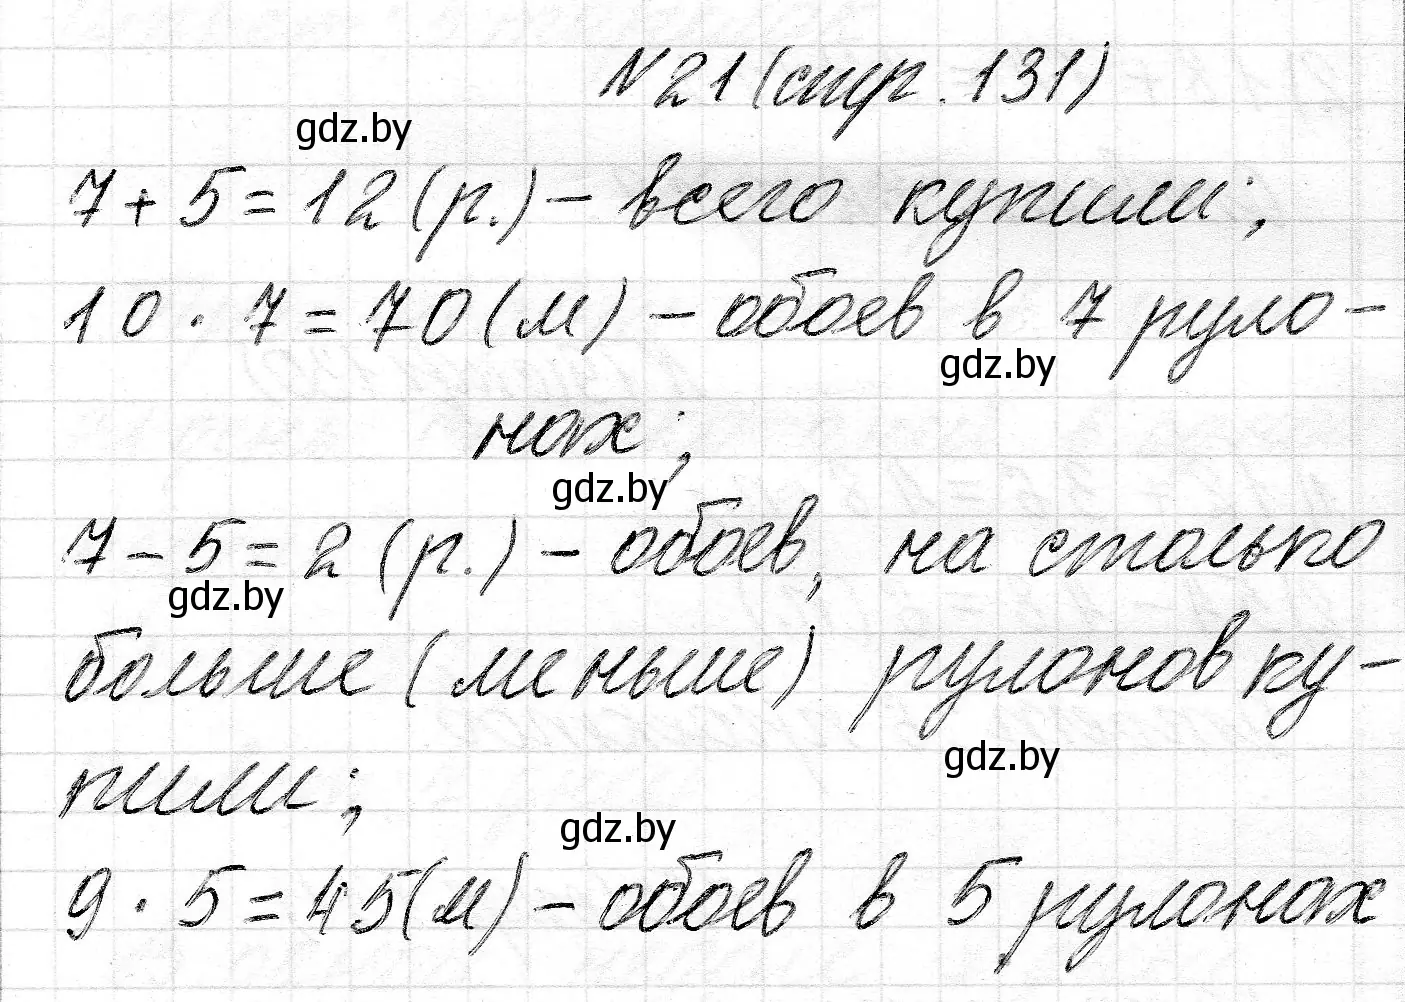 №21 (стр. 131)
gdz.by
7 + 5 = 12 (р.) – всего купили;
10 · 7 = 70 (м) – обоев в 7 руло-
gdz.by
нах;
gdz.by
7 – 5 = 2 (р.) – обоев, на столько
gdz.by
больше (меньше) рулонов ку-
gdz.by
пили;
gdz.by
9 · 5 = 45 (м) – обоев в 5 рулонах